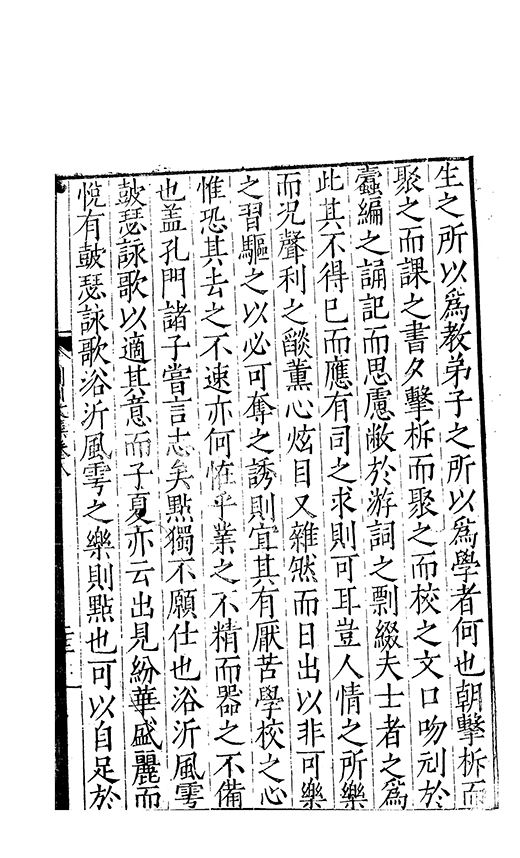 生之所以爲教弟子之所以爲學者何也朝擊柝而
聚之而課之書夕擊柝而聚之而校之文口吻刓於
蠹編之誦記而思慮敝於游詞之剽綴夫士者之爲
此其不得已而應有司之求則可耳豈人情之所樂
而况聲利之燄薰心炫目又雜然而日出以非可樂
之習驅之以必可奪之誘則宜其有厭苦學校之心
惟恐其去之不速亦何恠乎業之不精而器之不備
也盖孔門諸子嘗言志矣㸃獨不願仕也浴沂風雩
鼓瑟詠歌以適其意而子夏亦云出見紛華盛麗而
悅有鼓瑟詠歌浴沂風雩之樂則㸃也可以自足於